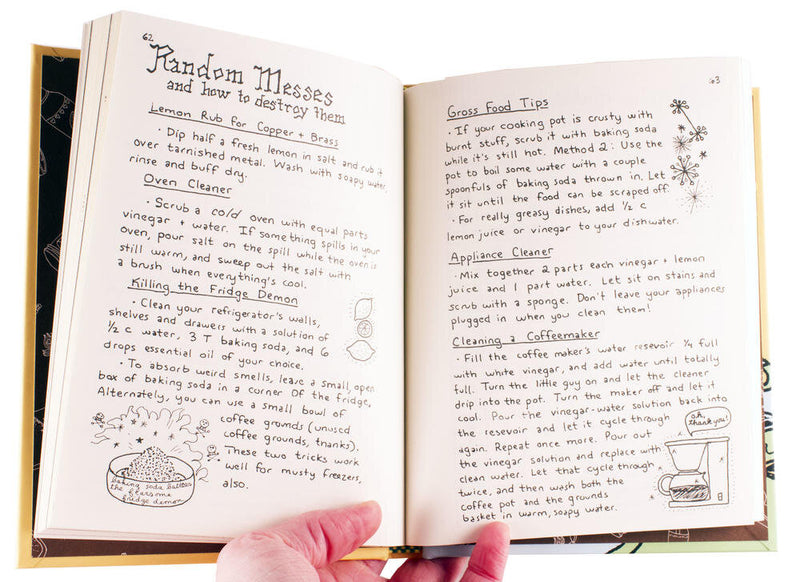 62
Random Messes
and how to destroy them
Lemon Rub for Copper + Brass
· Dip half a fresh lemon in salt and rub it
over tarnished metal. Wash with soapy water,
rinse and buff dry.
Oven Cleaner
· Scrub a cold oven with equal parts
vinegar + water. If something spills in your
oven, pour salt on the spill while the oven is
still warm, and sweep out the salt with
a brush when everything's cool.
Killing the Fridge Demon
· Clean your refrigerator's walls,
shelves and drawers with a solution of
½ c water, 3 T baking soda, and 6
drops essential oil of your choice.
· To absorb weird smells, leave a small, open
box of baking soda in a corner of the fridge.
Alternately, you can use a small bowl of
coffee grounds (unused
coffee grounds, thanks).
These two tricks work
well for musty freezers,
also.
baking soda battles
the fearsome
fridge demon
63
Gross Food Tips
· If your cooking pot is crusty with
burnt stuff, scrub it with baking soda
while it's still hot. Method 2: Use the
pot to boil some water with a couple
spoonfuls of baking soda thrown in. Let
it sit until the food can be scraped off.
· For really greasy dishes, add ½ c
lemon juice or vinegar to your dishwater.
Appliance Cleaner
· Mix together 2 parts each vinegar + lemon
juice and 1 part water. Let sit on stains and
scrub with a sponge. Don't leave your appliances
plugged in when you clean them!
Cleaning a Coffeemaker
· Fill the coffee maker's water resevoir ¼ full
with white vinegar, and add water until totally
full. Turn the little guy on and let the cleaner
drip into the pot. Turn the maker off and let it
cool. Pour the vinegar-water solution back into
the resevoir and let it cycle through
again. Repeat once more. Pour out
the vinegar solution and replace with
clean water. Let that cycle through
twice, and then wash both the
coffee pot and the grounds
basket in warm, soapy water.
oh,
thank you!